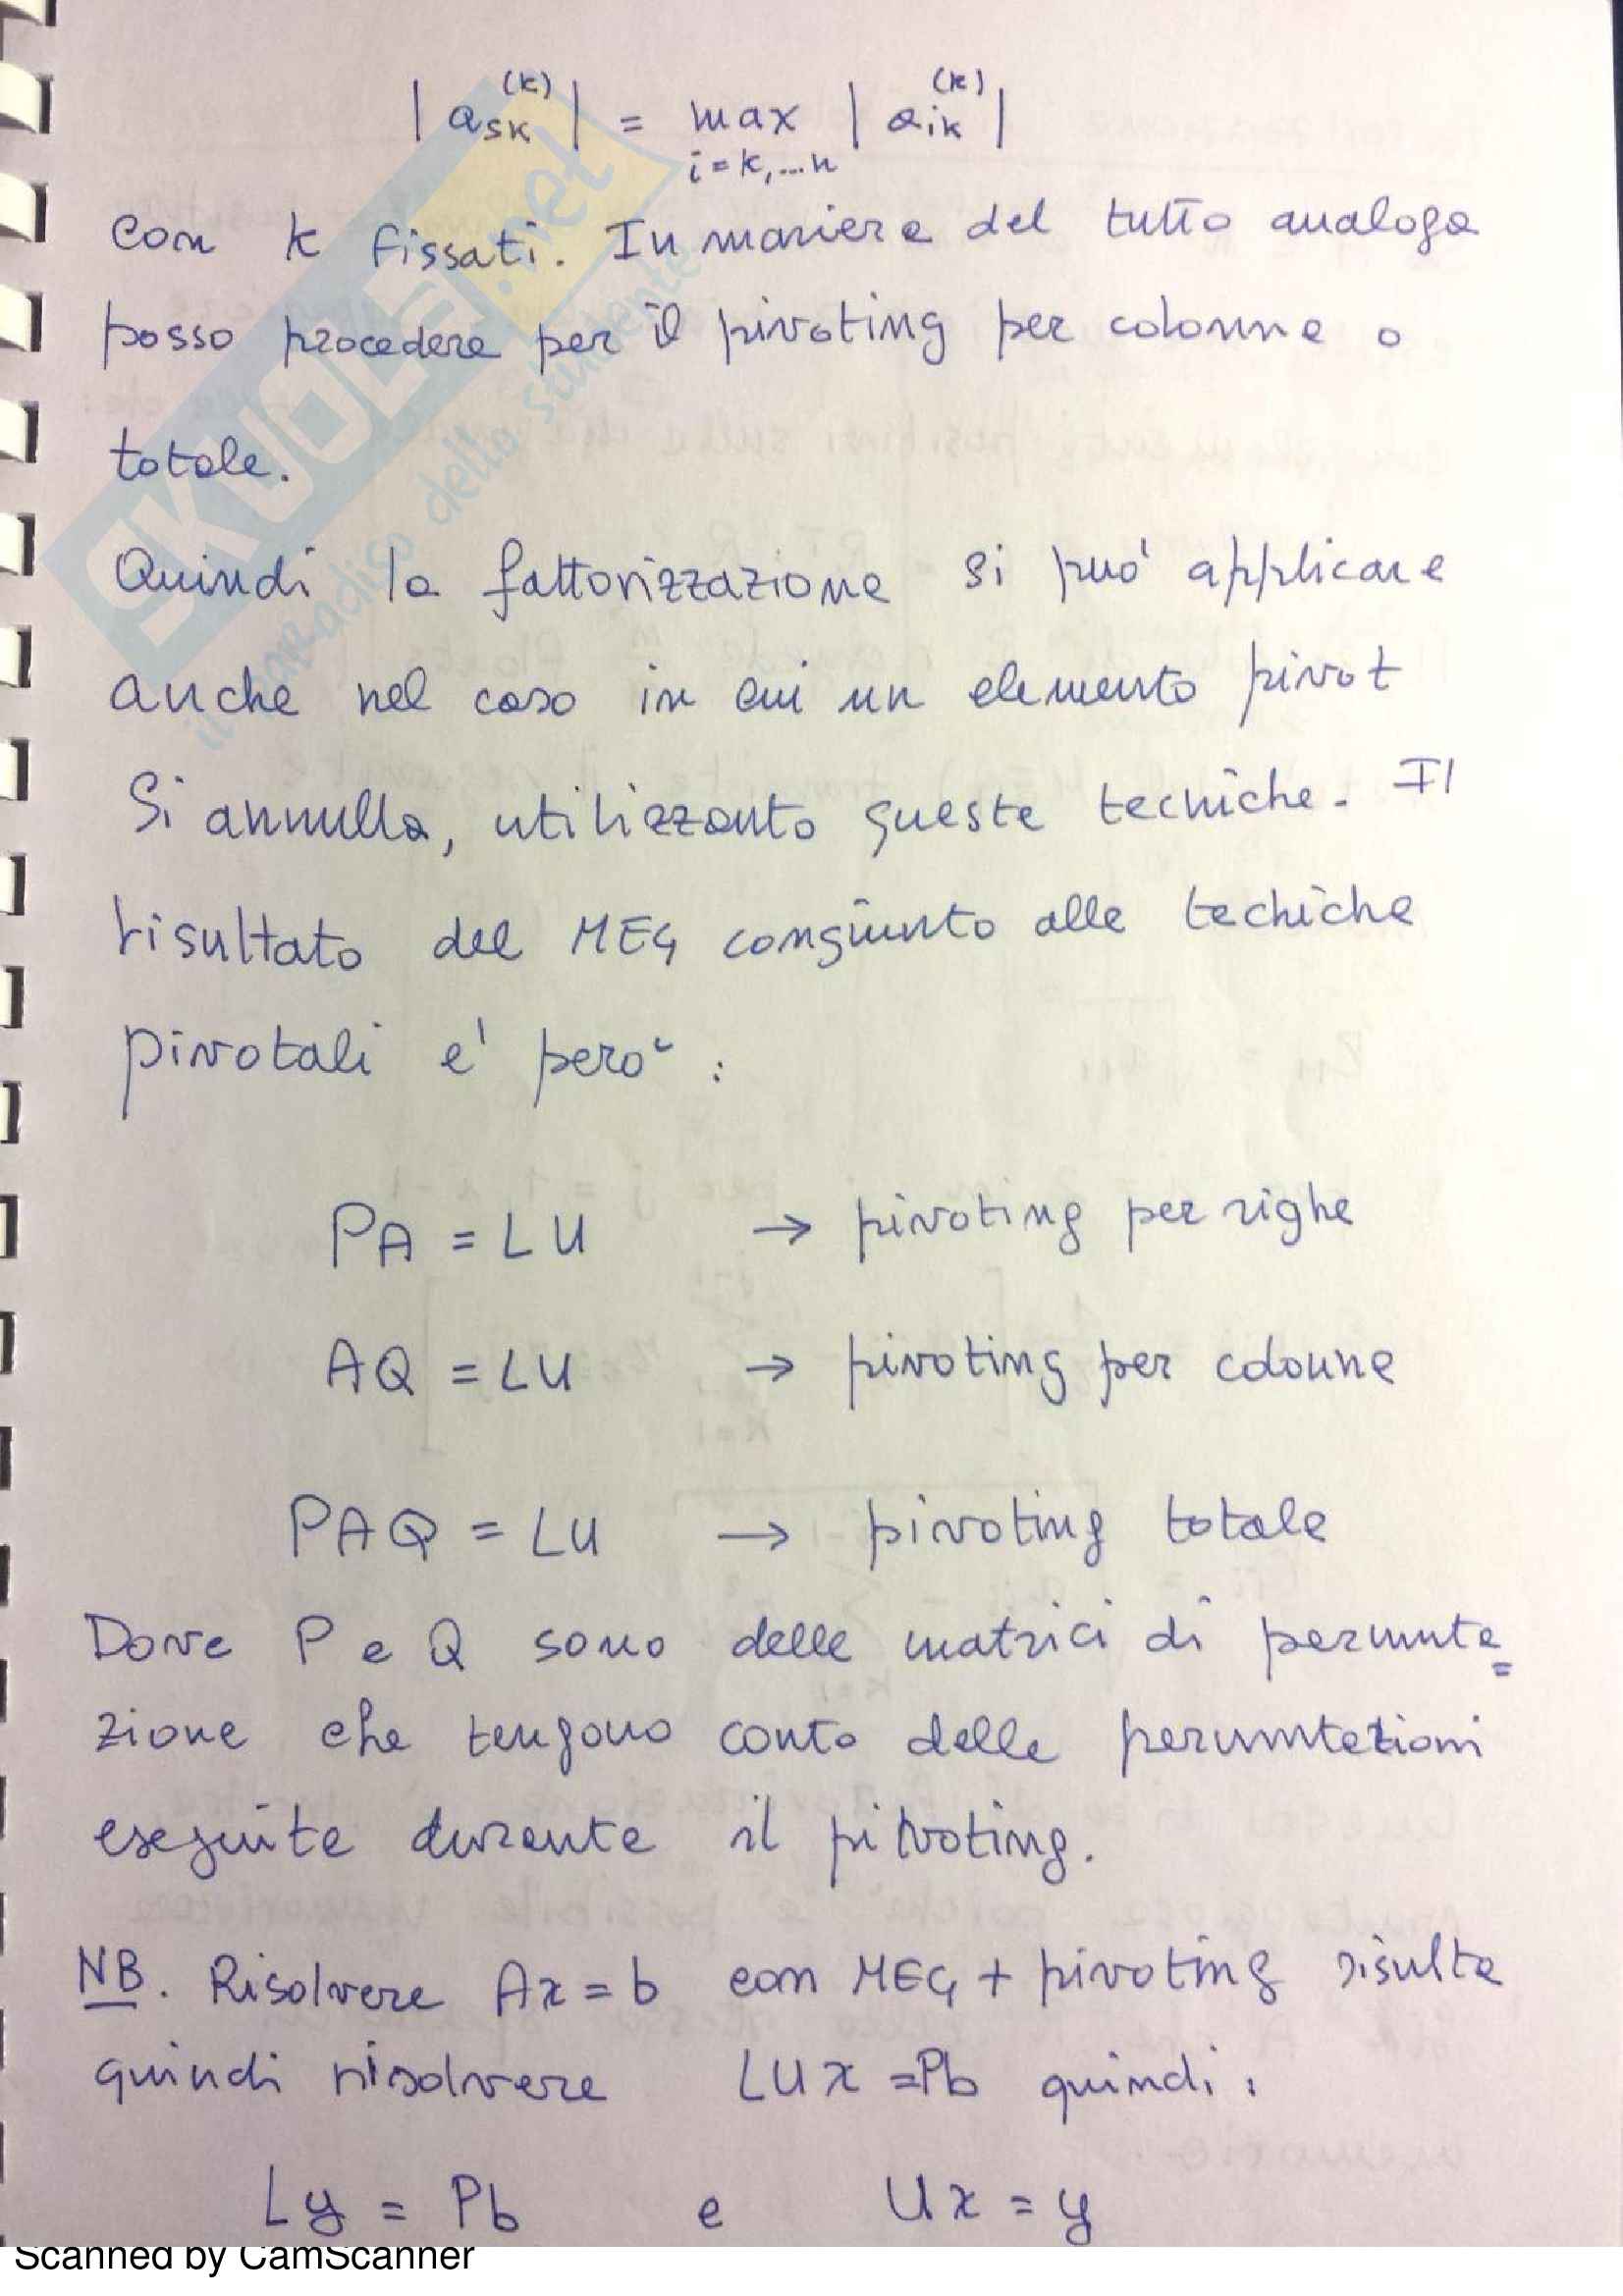 | a_sk^(k) | = max_{i=k,...n} | a_ik^(k) |
con k fissati. In maniera del tutto analoga
posso procedere per il pivoting per colonne o
totale.
Quindi la fattorizzazione si può applicare
anche nel caso in cui un elemento pivot
si annulla, utilizzanto queste tecniche. Il
risultato del MEG congiunto alle techiche
pivotali e' però :
PA = LU → pivoting per righe
AQ = LU → pivoting per colonne
PAQ = LU → pivoting totale
Dove P e Q sono delle matrici di permuta=
zione che tengono conto delle permutazioni
eseguite durante il pivoting.
NB. Risolvere Ax = b con MEG + pivoting risulta
quindi risolvere LUx = Pb quindi:
Ly = Pb e Ux = y
SKUOLA.net
il paradiso dello studente
Scanned by CamScanner